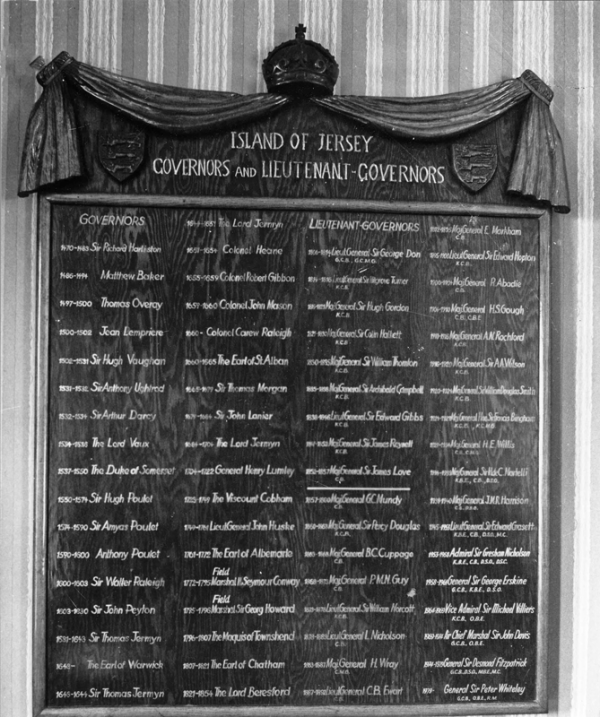 ISLAND OF JERSEY
GOVERNORS AND LIEUTENANT-GOVERNORS
GOVERNORS
1470-1483 Sir Richard Harliston
1486-1494 Matthew Baker
1497-1500 Thomas Overay
1500-1502 Jean Lempriere
1502-1531 Sir Hugh Vaughan
1531-1532 Sir Anthony Ughtred
1532-1534 Sir Arthur Darcy
1534-1535 The Lord Vaux
1537-1550 The Duke of Somerset
1550-1574 Sir Hugh Poulet
1574-1590 Sir Amyas Poulet
1590-1600 Anthony Poulet
1600-1603 Sir Walter Raleigh
1603-1630 Sir John Peyton
Sir Thomas Jermyn
The Earl of Warwick
Sir Thomas Jermyn
The Lord Jermyn
Colonel Heane
1655-1659 Colonel Robert Gibbon
1659-1660 Colonel John Mason
1660- Colonel Carew Raleigh
1660-1665 The Earl of St. Alban
1665-1679 Sir Thomas Morgan
1679-1684 Sir John Lanier
1684-1704 The Lord Jermyn
1704-1722 General Harry Lumley
1723-1749 The Viscount Cobham
1749-1761 Lieut General John Huske
1761-1772 The Earl of Albemarle
Field
1772-1795 Marshal H. Seymour Conway
Field
1795-1796 Marshal Sir Georg Howard
1796-1807 The Moquis of Townshend
1807-1821 The Earl of Chatham
1821-1854 The Lord Beresford
LIEUTENANT-GOVERNORS
Lieut General Sir George Don
G.C.B., G.C.M.G.
Lieut General Sir Hilgrove Turner
K.C.B.
Maj General Sir Hugh Gordon
K.C.B.
Maj General Sir Colin Halkett
K.C.B.
Maj General Sir William Thornton
K.C.B.
Maj General Sir Archibald Campbell
K.C.B.
Maj General Sir Edward Gibbs
K.C.B.
Maj General Sir James Reynett
K.C.B.
1852-1857 Maj General Sir James Love
C.B.
1857-1860 Maj General G.C. Mundy
1860-1863 Maj General Sir Percy Douglas
Maj General B.C. Cuppage
C.B.
1868-1873 Maj General P.M.N. Guy
C.B.
Lieut General Sir William Norcott
K.C.B.
Lieut General L. Nicholson
C.B.
Maj General H. Wray
C.M.G.
1887-1892 Lieut General C.B. Ewart
C.B.
Maj General E. Markham
C.B.
Lieut General Sir Edward Hopton
K.C.B.
Maj General R. Abadie
C.B.
Maj General H.S. Gough
Maj General A.N. Rochford
Maj General Sir A.A. Wilson
K.C.B.
Maj General Sir William Douglas Smith
K.C.B.
Maj General Hon. Sir Francis Bingham
Maj General H.E. Willis
Maj General Sir H. de C. Martelli
K.B.E., C.B., D.S.O.
Maj General J.M.R. Harrison
Lieut General Sir Edward Grasett
K.B.E., C.B., D.S.O., M.C.
1953-1958 Admiral Sir Gresham Nicholson
K.B.E., C.B., D.S.O., D.S.C.
General Sir George Erskine
G.C.B., K.B.E., D.S.O.
1964-1969 Vice Admiral Sir Michael Villiers
K.C.B., O.B.E.
Air Chief Marshal Sir John Davis
G.C.B., O.B.E.
General Sir Desmond Fitzpatrick
G.C.B., D.S.O., M.B.E., M.C.
1979- General Sir Peter Whiteley
G.C.B., O.B.E.